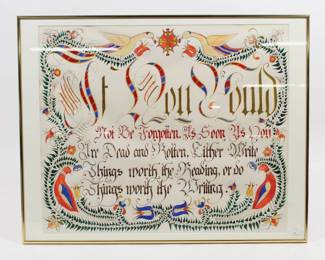 If You Would
Not Be Forgotten, As Soon As You
Are Dead and Rotten, Either Write
Things worth the Reading, or do
Things worth the Writing.